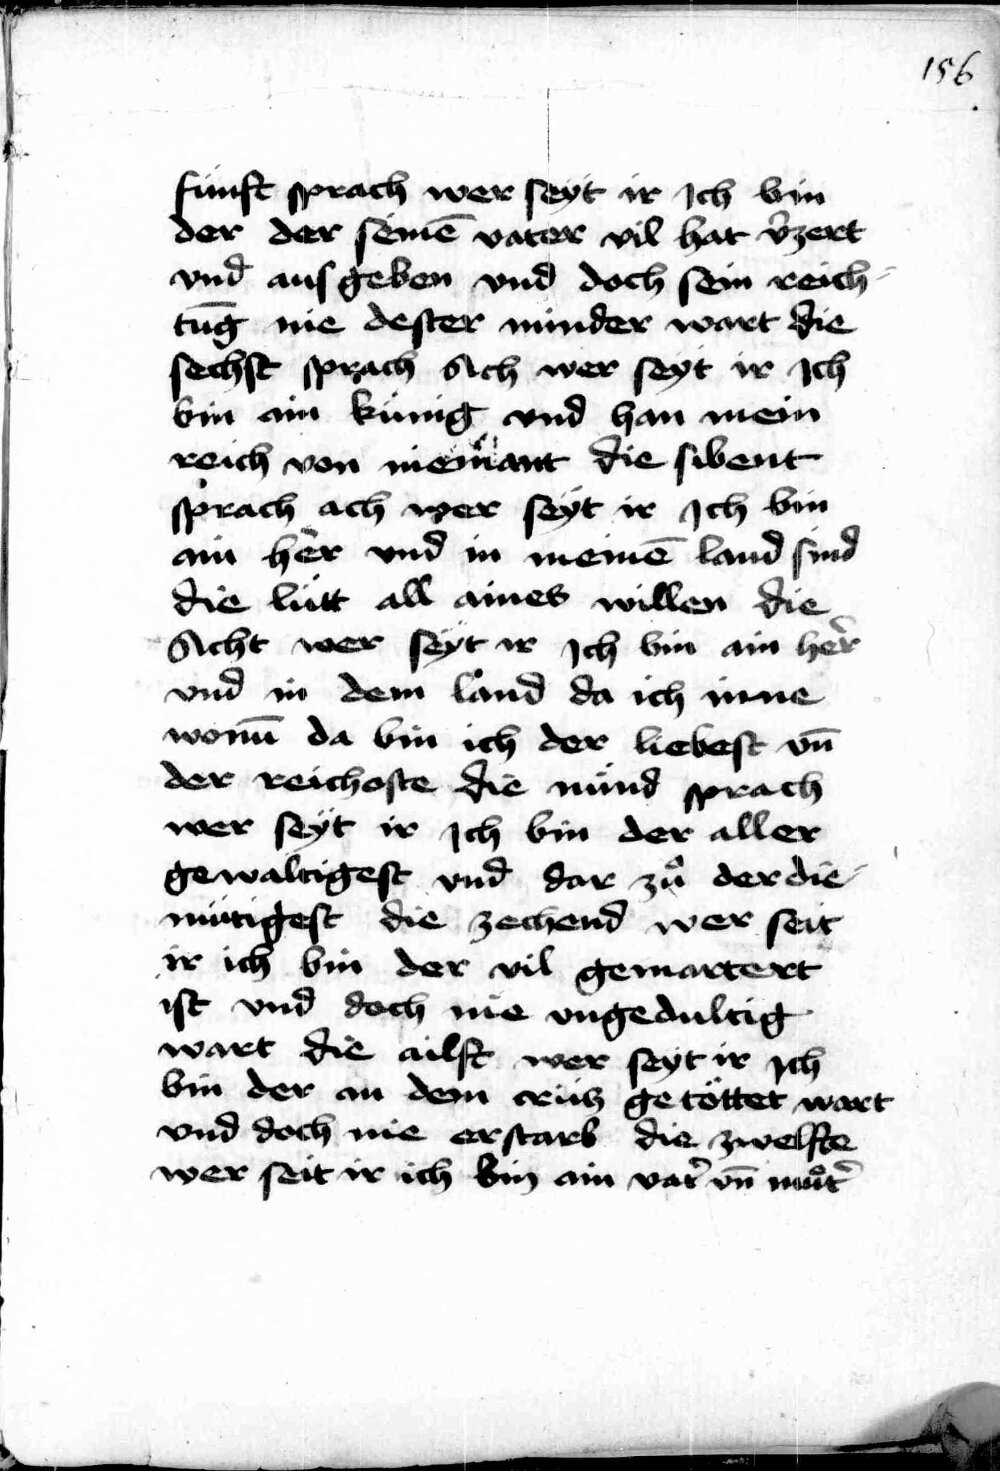 156
fünft sprach wer seyt ir Ich bin
der der seinē vater vil hat v̓zert
vnd ausgeben vnd doch sein reich-
tūg nie dester minder wart die
sechst sprach Ach wer seyt ir Ich
bin ain künig vnd han mein
reich von niemant die sibent
sprach ach wer seÿt ir Ich bin
ain her vnd in meinē land sind
die lütt all aines willen die
Acht wer seÿt ir Ich bin ain her̓
vnd in dem land da ich inne
wonū da bin ich der liebest vn̄
der reichoste die nünd sprach
wer seÿt ir Ich bin der aller
gewaltigest vnd dar zů der die-
mütigest die zechend wer seit
ir ich bin der vil gemartert
ist vnd doch nie vngedultig
wart die ailft wer seyt ir Ich
bin der an dem crütz getöttet wart
vnd doch nie erstarb die zwelfte
wer seit ir ich bin ain vat̓ vn̄ můt̓